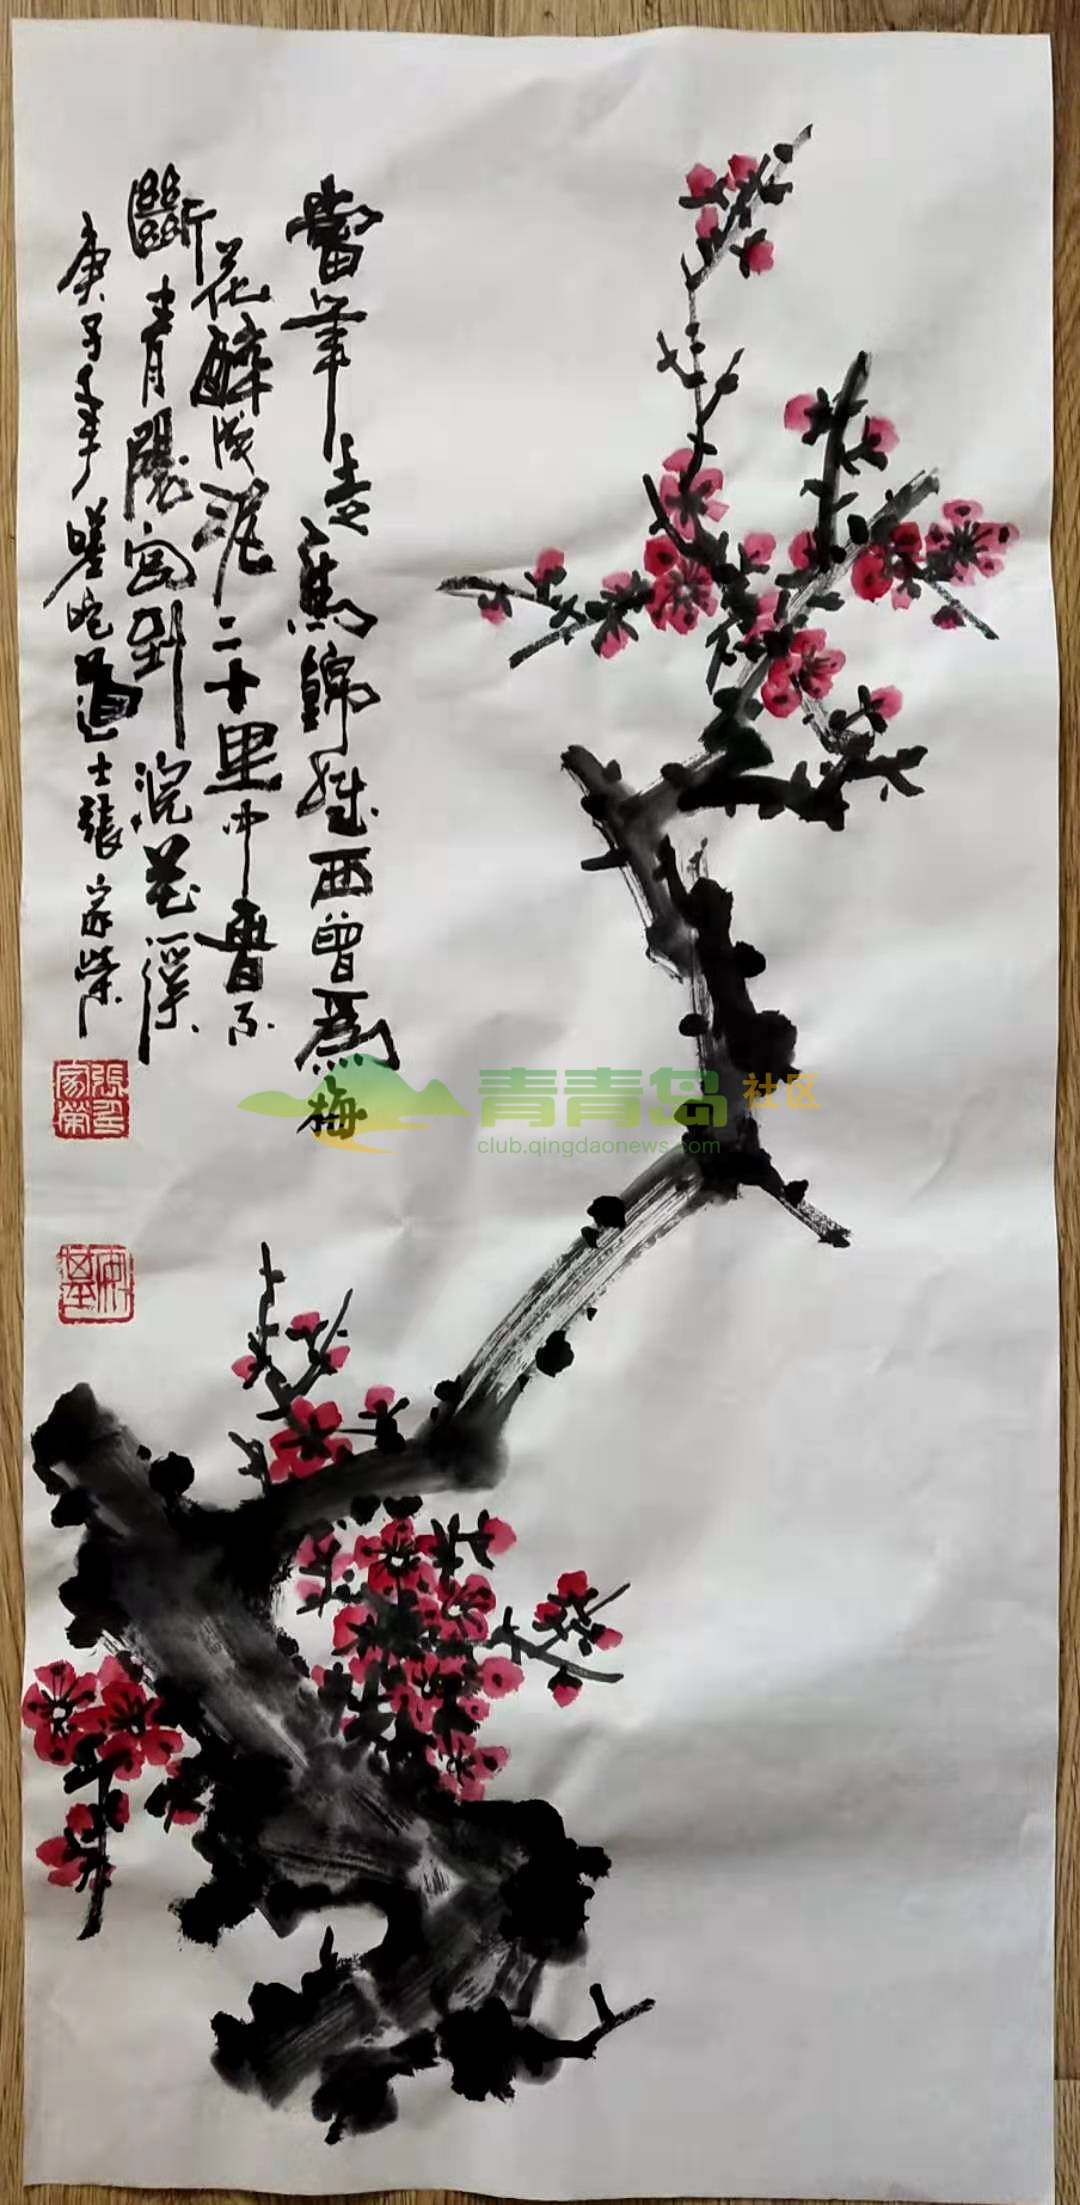 當年走馬錦城西曾為梅
花醉似泥二十里中香不
斷青陽宮到浣花溪
庚子年 道士張家榮
張家榮印
青青岛社区
club.qingdaonews.com